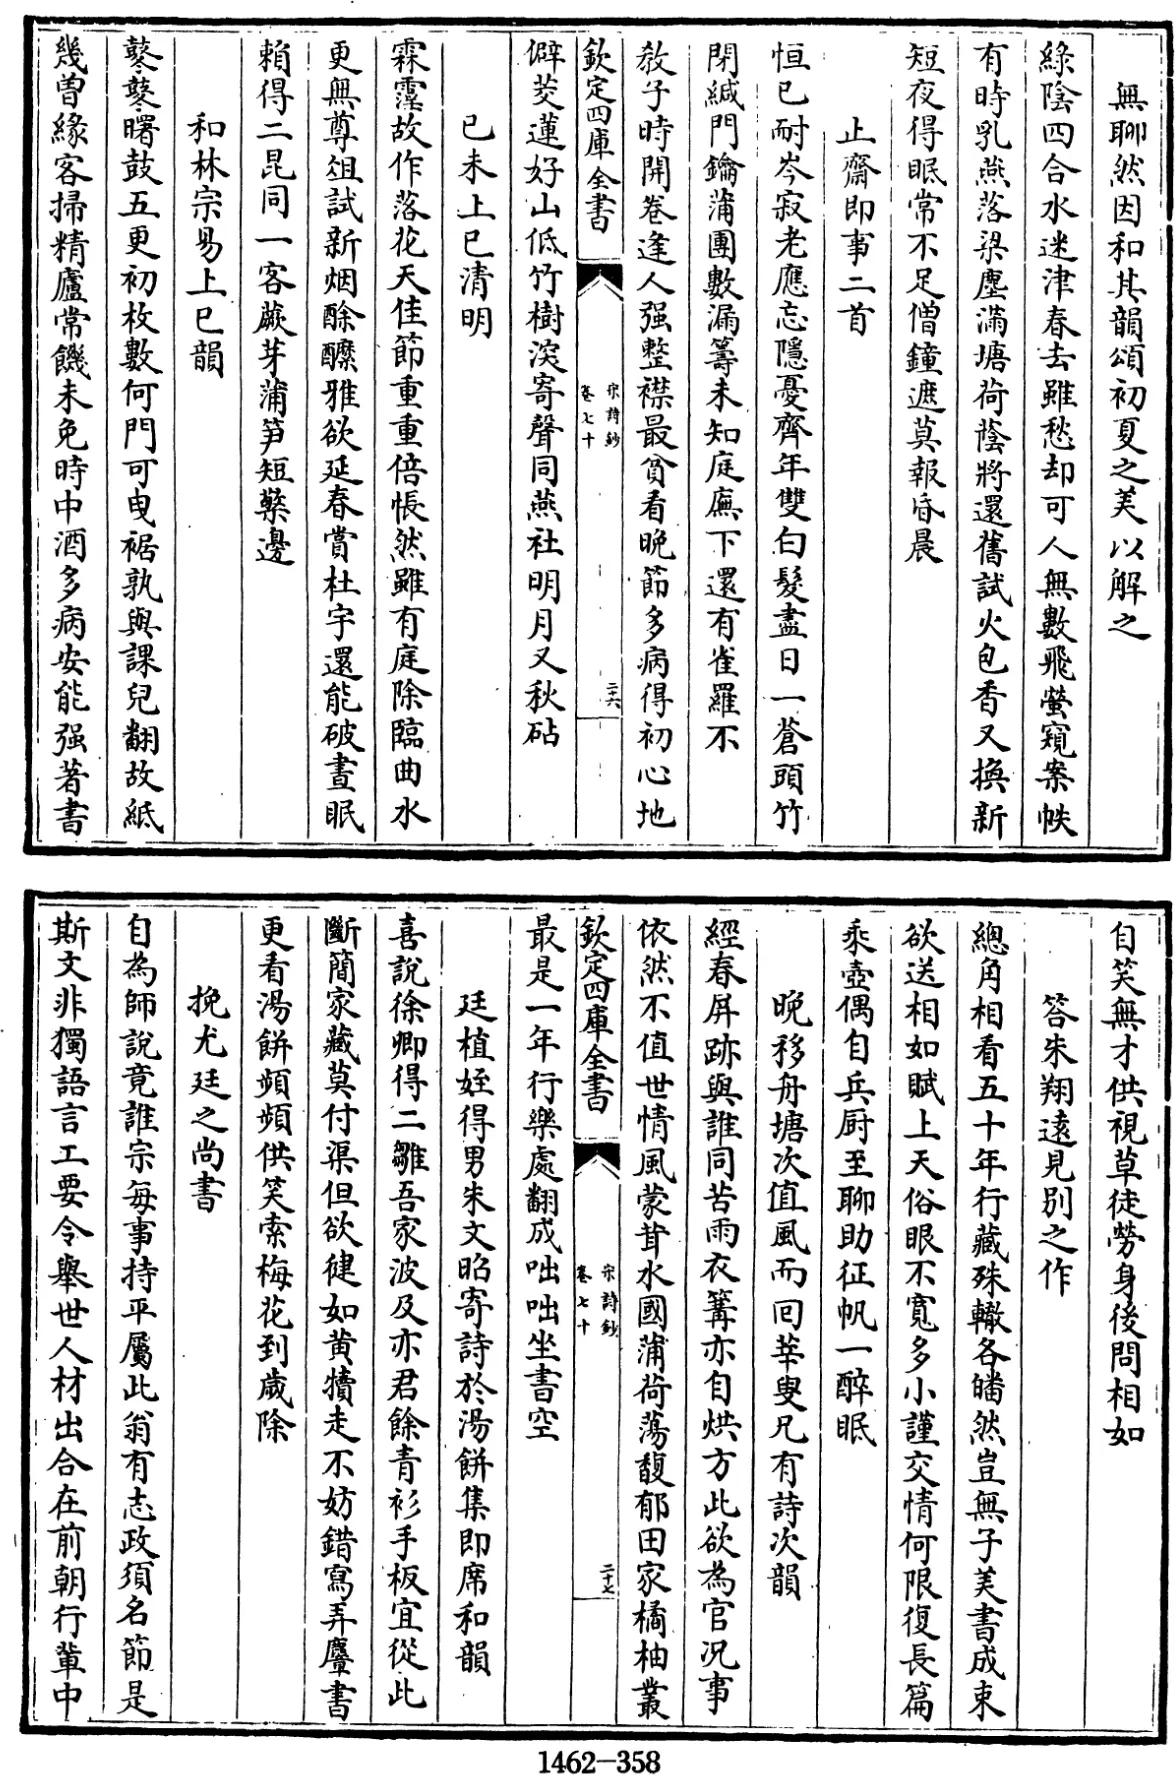 無聊然因和其韻頌初夏之美以解之
綠陰四合水迷津春去雖愁却可人無數飛螢窺案帙
有時乳燕落梁塵滿塘荷蔭將還舊試火包香又換新
短夜得眠常不足僧鐘遮莫報昏晨
止齋即事二首
恒已耐岑寂老應忘隱憂齊年雙白髮盡日一蒼頭竹
閉緘門鑰蒲團數漏籌未知庭廡下還有雀羅不
教子時開卷逢人强整襟最貪看晚節多病得初心地
欽定四庫全書
宋詩鈔
卷七十
二十六
僻茭蓮好山低竹樹深寄聲同燕社明月又秋砧
已未上巳清明
霖霪故作落花天佳節重重倍悵然雖有庭除臨曲水
更無尊俎試新烟酴醾雅欲延春賞杜宇還能破晝眠
賴得二昆同一客蕨芽蒲笋短檠邊
和林宗易上巳韻
鼕鼕曙鼓五更初枚數何門可曳裾孰與課兒翻故紙
幾曾緣客掃精廬常饑未免時中酒多病安能强著書
自笑無才供視草徒勞身後問相如
答朱翔遠見別之作
總角相看五十年行藏殊轍各皤然豈無子美書成束
欲送相如賦上天俗眼不寬多小謹交情何限復長篇
乘壺偶自兵厨至聊助征帆一醉眠
晚移舟塘次值風而囘莘叟兄有詩次韻
經春屏跡與誰同苦雨衣篝亦自烘方此欲為官况事
依然不值世情風蒙茸水國蒲荷蕩馥郁田家橘柚叢
欽定四庫全書
宋詩鈔
卷七十
二十七
最是一年行樂處翻成咄咄坐書空
廷植姪得男朱文昭寄詩於湯餅集即席和韻
喜說徐卿得二雛吾家波及亦君餘青衫手板宜從此
斷簡家藏莫付渠但欲健如黄犢走不妨錯寫弄麞書
更看湯餅頻頻供笑索梅花到歲除
挽尤廷之尚書
自為師說竟誰宗每事持平屬此翁有志政須名節是
斯文非獨語言工要令舉世人材出合在前朝行輩中
1462-358